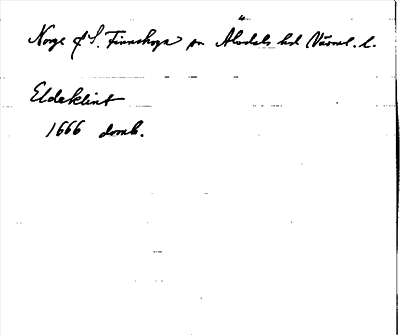 Norge f S. Finnskoga sn Älvdals hd Värml. l.
Eldeklint
1666 domb.